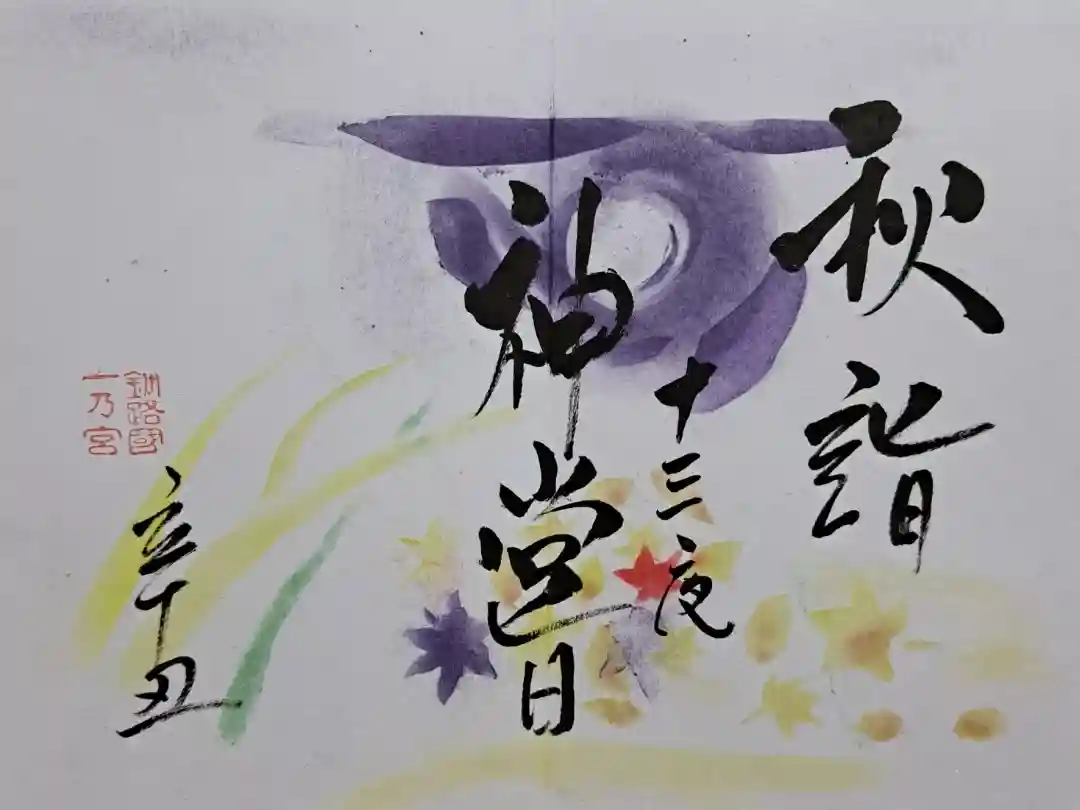 秋詣
十三夜
神嘗
釧路國
一乃宮
辛丑